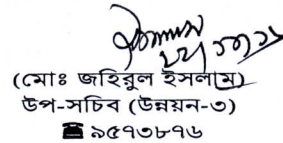 (মোঃ জহিরুল ইসলাম)
উপ-সচিব (উন্নয়ন-৩)
☎ ৯৫৭৩৮৭৬